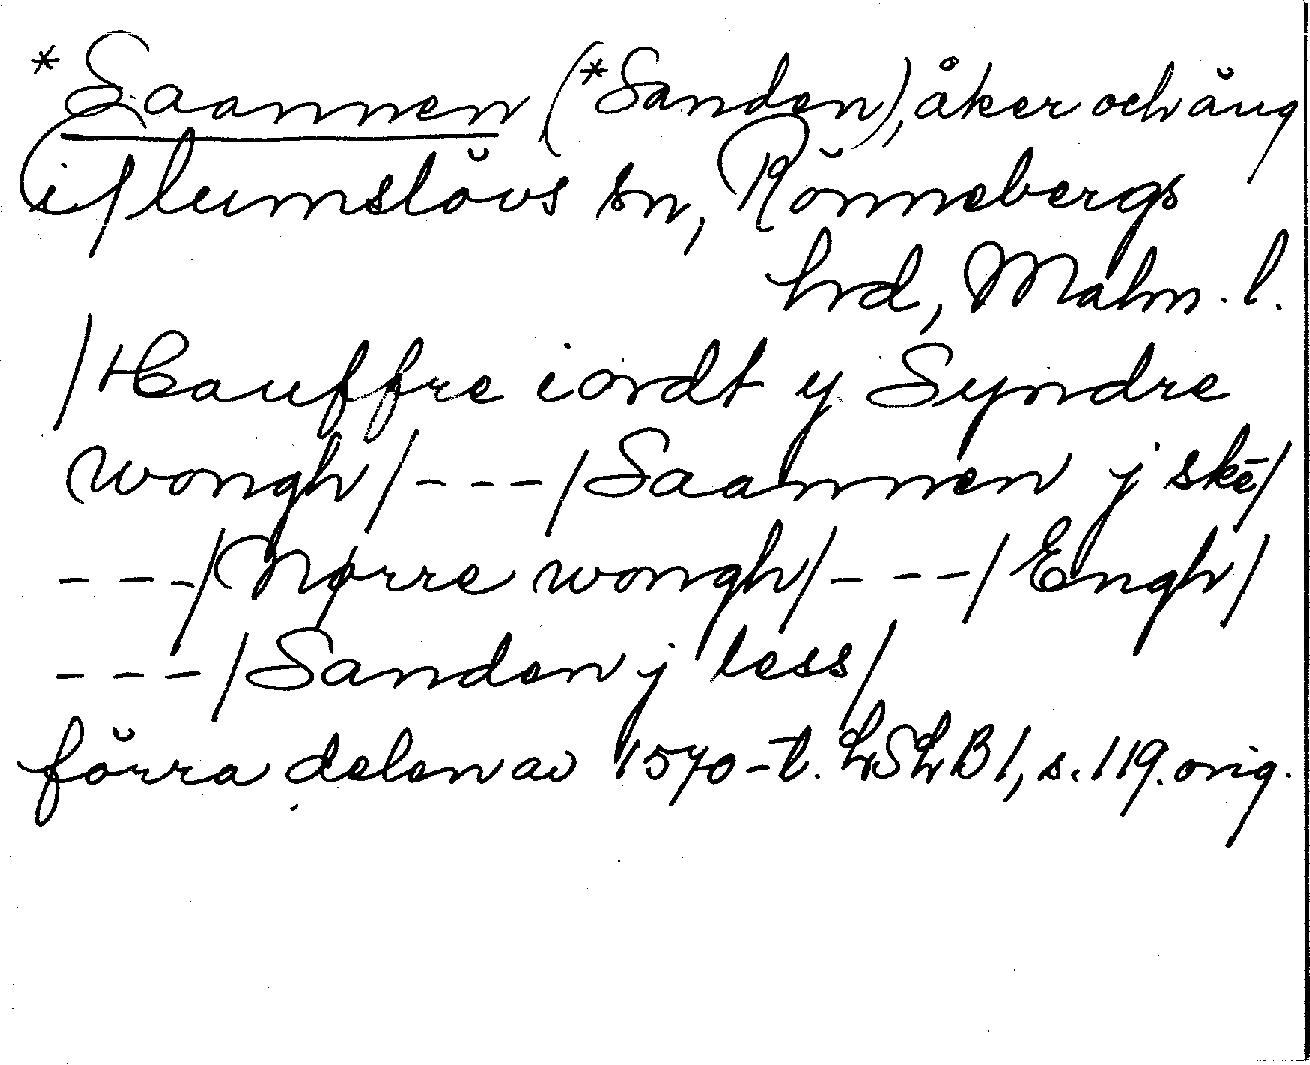 *Saannen (*Sanden), åker och äng
i Glumslövs sn, Rönnebergs
hrd, Malm. l.
/Hauffre iordt y Syndre
wongh/ --- /Saannen j skē/
--- /Nørre wongh/ --- /Engh/
--- /Sanden j less/
förra delen av 1570-t. LSLB 1, s. 119. orig.